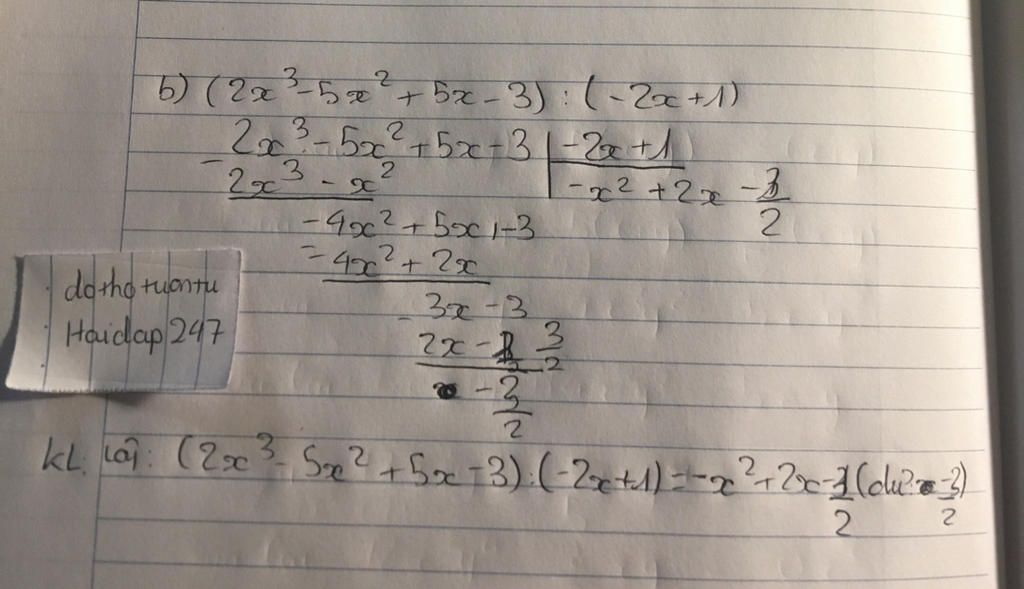 b) (2x³ - 5x² + 5x - 3) : (-2x + 1)
2x³ - 5x² + 5x - 3 | -2x + 1
- 2x³ - x² | -x² + 2x - 3/2
-4x² + 5x - 3
- -4x² + 2x
3x - 3
- 2x - 3/2
- 3/2
dothotuontu
Hoidap247
KL: (2x³ - 5x² + 5x - 3) : (-2x + 1) = -x² + 2x - 3/2 (dư - 3/2)